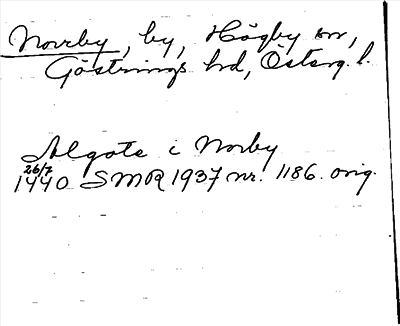 Norrby, by, Högby sn,
Göstrings hd, Österg. l.
Algote i Norby
26/7
1440 SMR 1937 nr. 1186. orig.